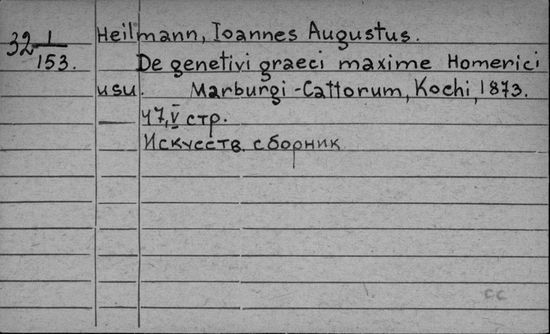 32 1/153.
Heilmann, Ioannes Augustus.
De genetivi graeci maxime Homerici
usu. Marburgi-Cattorum, Kochi, 1873.
47, V стр.
Искусств. сборник
cc